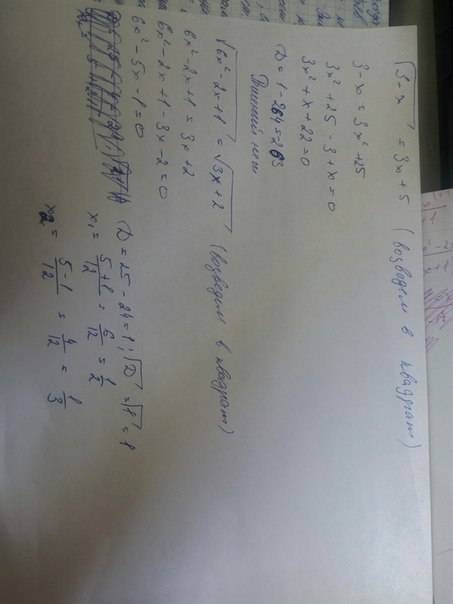 √3-x = 3x+5 (возводем в квадрат)
3-x = 3x²+25
3x²+25-3+x=0
3x²+x+22=0
D=1-264=-263
Решений нет
√6x²-2x+1 = √3x+2 (возведем в квадрат)
6x²-2x+1=3x+2
6x²-2x+1-3x-2=0
6x²-5x-1=0
D=25-24=1; √D=√1=1
x₁= 5+1/12 = 6/12 = 1/2
x₂= 5-1/12 = 4/12 = 1/3